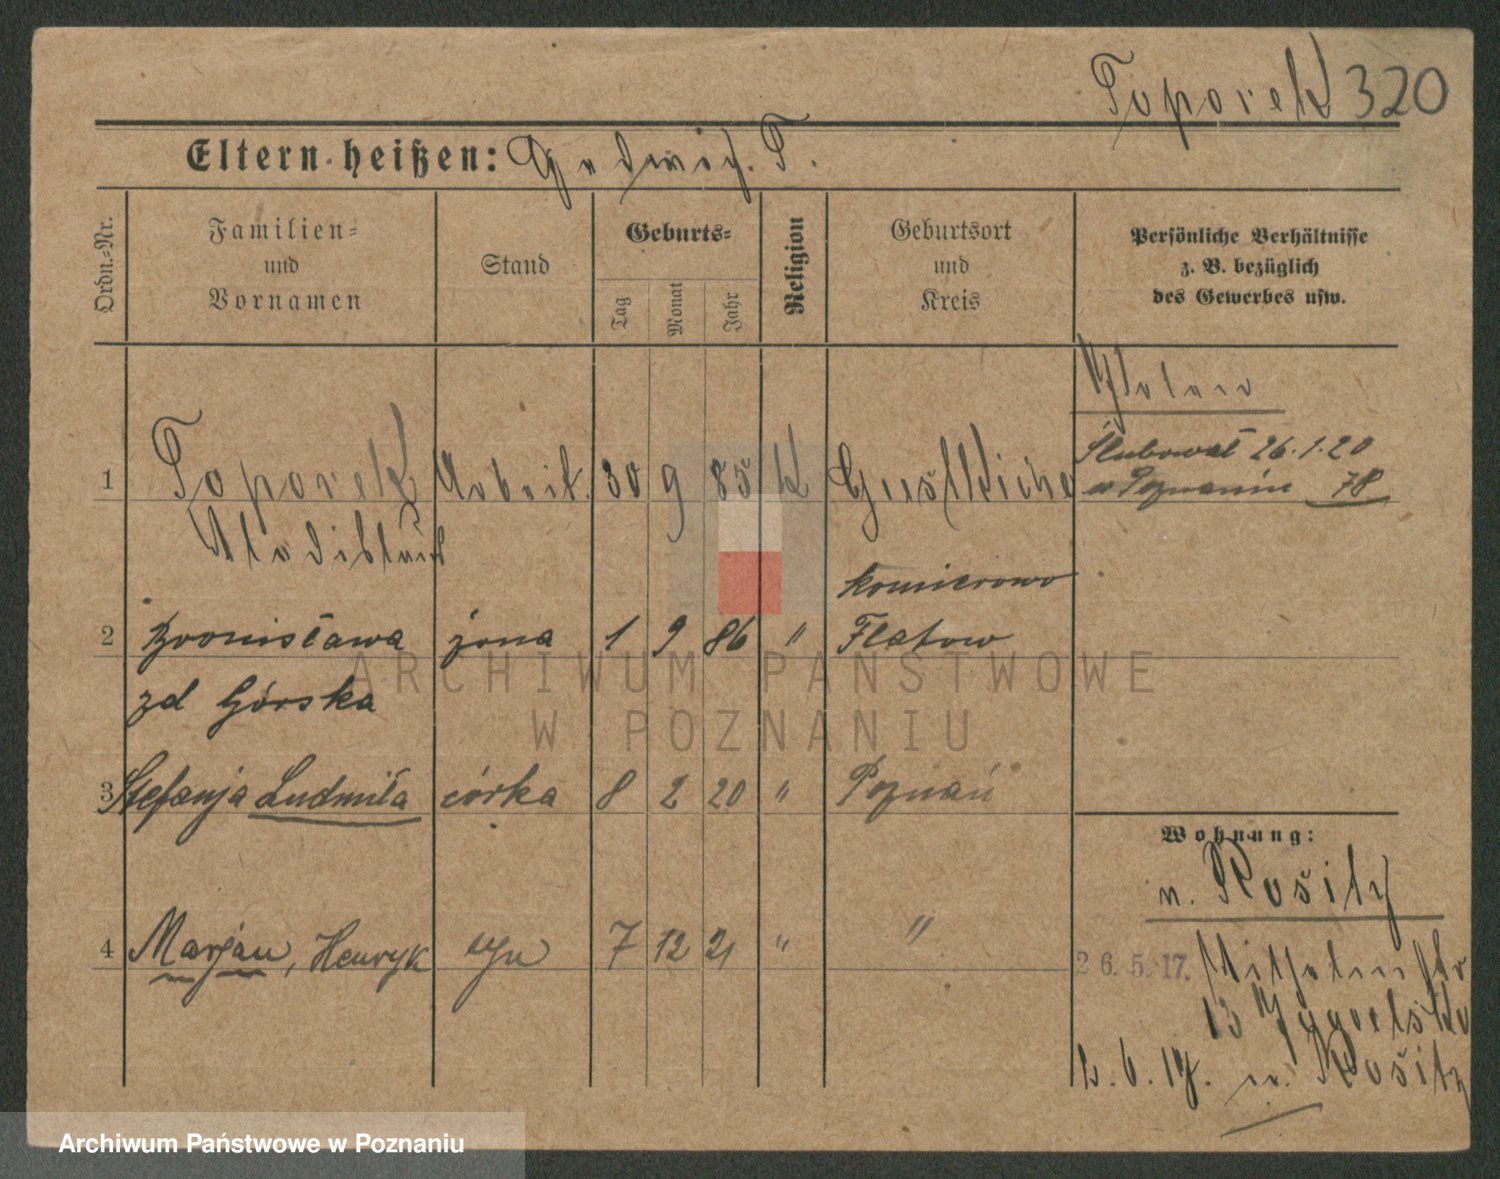 Toporek 320
Eltern heißen: Hedwig. T.
Ordn.-Nr.
Familien-
und
Vornamen
Stand
Geburts-
Tag
Monat
Jahr
Religion
Geburtsort
und
Kreis
Persönliche Verhältnisse
z. B. bezüglich
des Gewerbes usw.
1 Toporek Arbeit. 30 9 85 K
Wladislaus
Ślubował 26.1.20
w Poznaniu 78
Komierowo
2 Bronisława żona 1 9 86 " Flatow
zd Górska
3 Stefanja Ludmiła córka 8 2 20 " Poznań
Wohnung:
n. Kositz
4 Marjan, Henryk syn 7 12 21 " "
26.5.17. Wilhelmstr
13
2.6.17. n. Kositz
ARCHIWUM PAŃSTWOWE
W POZNANIU
Archiwum Państwowe w Poznaniu